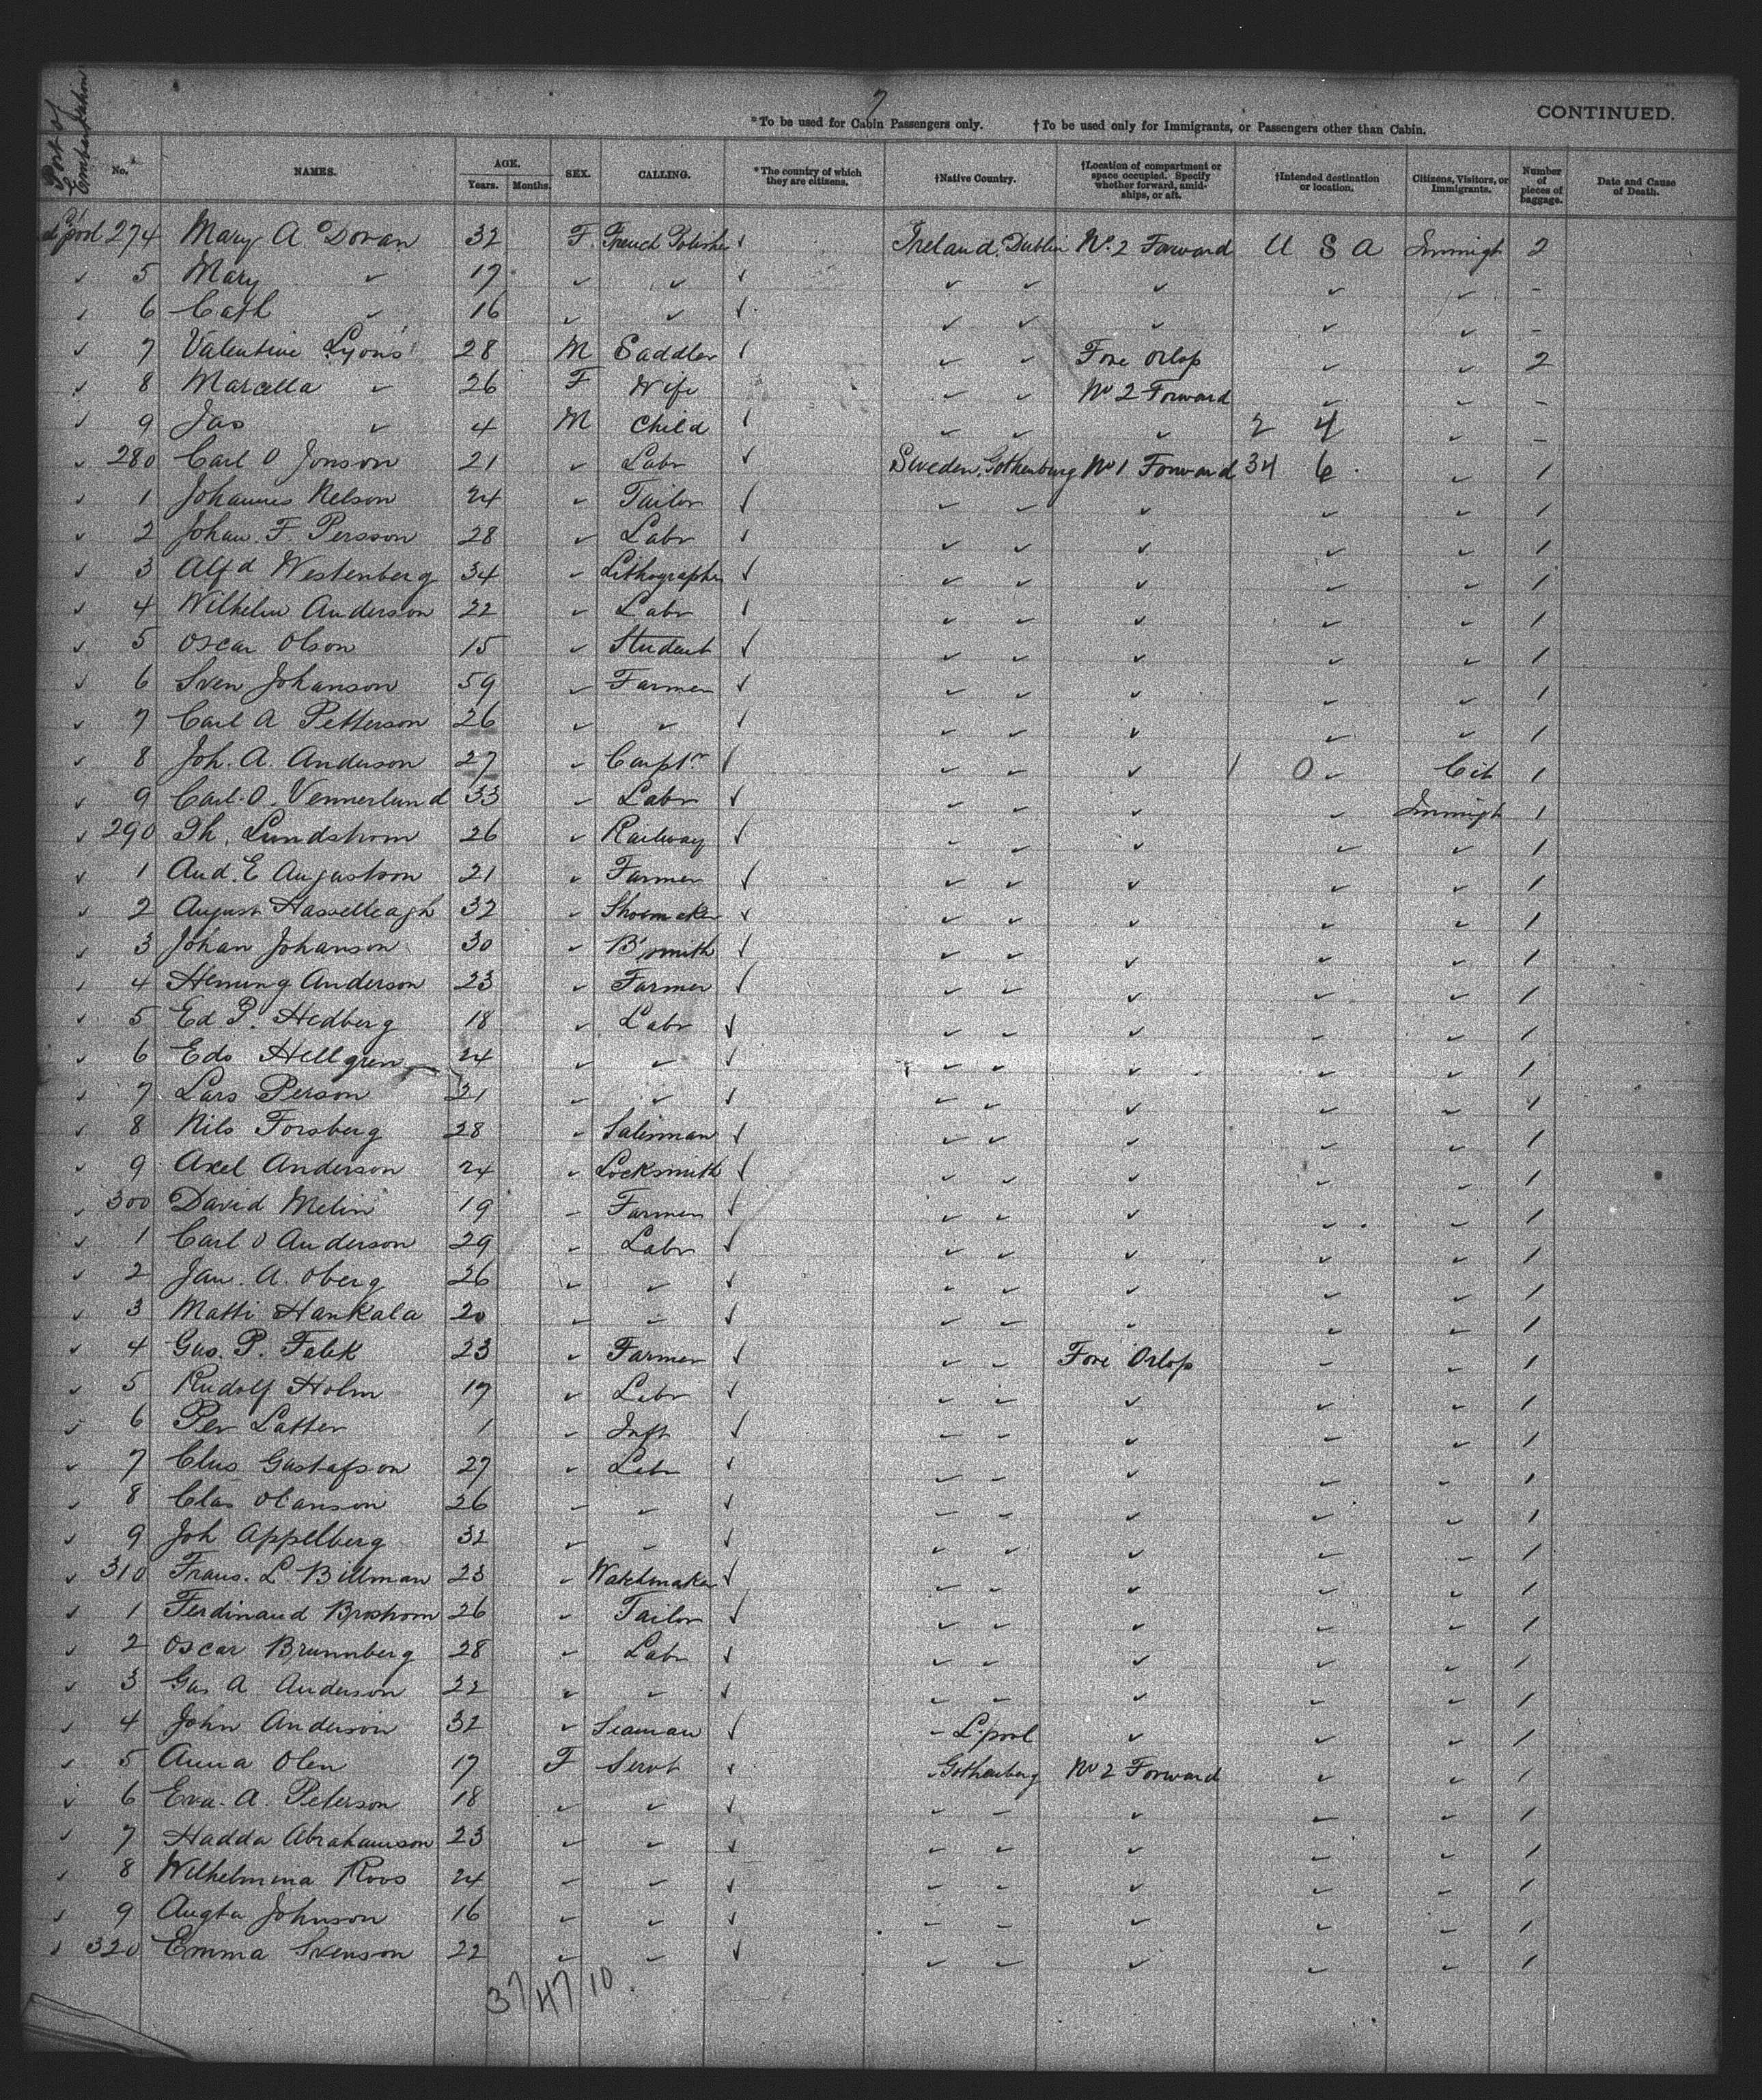 7
CONTINUED.
*To be used for Cabin Passengers only. †To be used only for Immigrants, or Passengers other than Cabin.
Port of Embarkation
No. NAMES. AGE. Years. Months. SEX. CALLING. *The country of which they are citizens. †Native Country. †Location of compartment or space occupied. Specify whether forward, amidships, or aft. †Intended destination or location. Citizens, Visitors, or Immigrants. Number of pieces of baggage. Date and Cause of Death.
L'pool 274 Mary A Doran 32 F. French Polisher ✓ Ireland, Dublin No. 2 Forward U S A Immigt 2
✓ 5 Mary ✓ 17 ✓ ✓ ✓ ✓ ✓ ✓ ✓ ✓ -
✓ 6 Cath ✓ 16 ✓ ✓ ✓ ✓ ✓ ✓ ✓ ✓ -
✓ 7 Valentine Lyons 28 M Saddler ✓ ✓ ✓ Fore Orlop ✓ ✓ 2
✓ 8 Marcella ✓ 26 F Wife ✓ ✓ No 2 Forward ✓ ✓ -
✓ 9 Jas ✓ 4 M Child ✓ ✓ ✓ ✓ 2 4 ✓ -
✓ 280 Carl O Jonson 21 ✓ Labr ✓ Sweden, Gothenburg No 1 Forward 34 6 ✓ 1
✓ 1 Johannes Nelson 24 ✓ Tailor ✓ ✓ ✓ ✓ ✓ ✓ 1
✓ 2 Johan. F. Persson 28 ✓ Labr ✓ ✓ ✓ ✓ ✓ ✓ 1
✓ 3 Alfd Westenberg 34 ✓ Lithographer ✓ ✓ ✓ ✓ ✓ ✓ 1
✓ 4 Wilhelm Anderson 22 ✓ Labr ✓ ✓ ✓ ✓ ✓ ✓ 1
✓ 5 Oscar Olson 15 ✓ Student ✓ ✓ ✓ ✓ ✓ ✓ 1
✓ 6 Sven Johanson 59 ✓ Farmer ✓ ✓ ✓ ✓ ✓ ✓ 1
✓ 7 Carl A Petterson 26 ✓ ✓ ✓ ✓ ✓ ✓ ✓ ✓ 1
✓ 8 Joh. A. Anderson 27 ✓ Carptr ✓ ✓ ✓ ✓ 1 0 ✓ Cit 1
✓ 9 Carl. O. Vennerlund 33 ✓ Labr ✓ ✓ ✓ ✓ ✓ Immigt 1
✓ 290 Th. Lundstrom 26 ✓ Railway ✓ ✓ ✓ ✓ ✓ ✓ 1
✓ 1 And. E Augustson 21 ✓ Farmer ✓ ✓ ✓ ✓ ✓ ✓ 1
✓ 2 August 32 ✓ Shoemaker ✓ ✓ ✓ ✓ ✓ ✓ 1
✓ 3 Johan Johanson 30 ✓ B'smith ✓ ✓ ✓ ✓ ✓ ✓ 1
✓ 4 Heming Anderson 23 ✓ Farmer ✓ ✓ ✓ ✓ ✓ ✓ 1
✓ 5 Ed P. Hedberg 18 ✓ Labr ✓ ✓ ✓ ✓ ✓ ✓ 1
✓ 6 Edo Hellgren 24 ✓ ✓ ✓ ✓ ✓ ✓ ✓ ✓ 1
✓ 7 Lars Person 21 ✓ ✓ ✓ ✓ ✓ ✓ ✓ ✓ 1
✓ 8 Nils Forsberg 28 ✓ Salesman ✓ ✓ ✓ ✓ ✓ ✓ 1
✓ 9 Axel Anderson 24 ✓ Locksmith ✓ ✓ ✓ ✓ ✓ ✓ 1
✓ 300 David Melin 19 ✓ Farmer ✓ ✓ ✓ ✓ ✓ ✓ 1
✓ 1 Carl O Anderson 29 ✓ Labr ✓ ✓ ✓ ✓ ✓ ✓ 1
✓ 2 Jan. A. Oberg 26 ✓ ✓ ✓ ✓ ✓ ✓ ✓ ✓ 1
✓ 3 Matti Hankala 20 ✓ ✓ ✓ ✓ ✓ ✓ ✓ ✓ 1
✓ 4 Gus. P. Falck 23 ✓ Farmer ✓ ✓ ✓ Fore Orlop ✓ ✓ 1
✓ 5 Rudolf Holm 17 ✓ Labr ✓ ✓ ✓ ✓ ✓ ✓ 1
✓ 6 Per Latter 1 ✓ Inft ✓ ✓ ✓ ✓ ✓ ✓ 1
✓ 7 Clus Gustafson 27 ✓ Labr ✓ ✓ ✓ ✓ ✓ ✓ 1
✓ 8 Clas Olanson 26 ✓ ✓ ✓ ✓ ✓ ✓ ✓ ✓ 1
✓ 9 Joh Appelberg 32 ✓ ✓ ✓ ✓ ✓ ✓ ✓ ✓ 1
✓ 310 Frans. L. Billman 23 ✓ Watchmaker ✓ ✓ ✓ ✓ ✓ ✓ 1
✓ 1 Ferdinand Brostrom 26 ✓ Tailor ✓ ✓ ✓ ✓ ✓ ✓ 1
✓ 2 Oscar Brunnberg 28 ✓ Labr ✓ ✓ ✓ ✓ ✓ ✓ 1
✓ 3 Gus A. Anderson 22 ✓ ✓ ✓ ✓ ✓ ✓ ✓ ✓ 1
✓ 4 John Anderson 32 ✓ Seaman ✓ ✓ L'pool ✓ ✓ ✓ 1
✓ 5 Anna Olen 17 F Servt ✓ ✓ Gothenberg No 2 Forward ✓ ✓ 1
✓ 6 Eva. A. Peterson 18 ✓ ✓ ✓ ✓ ✓ ✓ ✓ ✓ 1
✓ 7 Hadda Abrahamson 23 ✓ ✓ ✓ ✓ ✓ ✓ ✓ ✓ 1
✓ 8 Wilhelmina Roos 24 ✓ ✓ ✓ ✓ ✓ ✓ ✓ ✓ 1
✓ 9 Augta Johnson 16 ✓ ✓ ✓ ✓ ✓ ✓ ✓ ✓ 1
✓ 320 Emma Svenson 22 ✓ ✓ ✓ ✓ ✓ ✓ ✓ ✓ 1
37 47 10